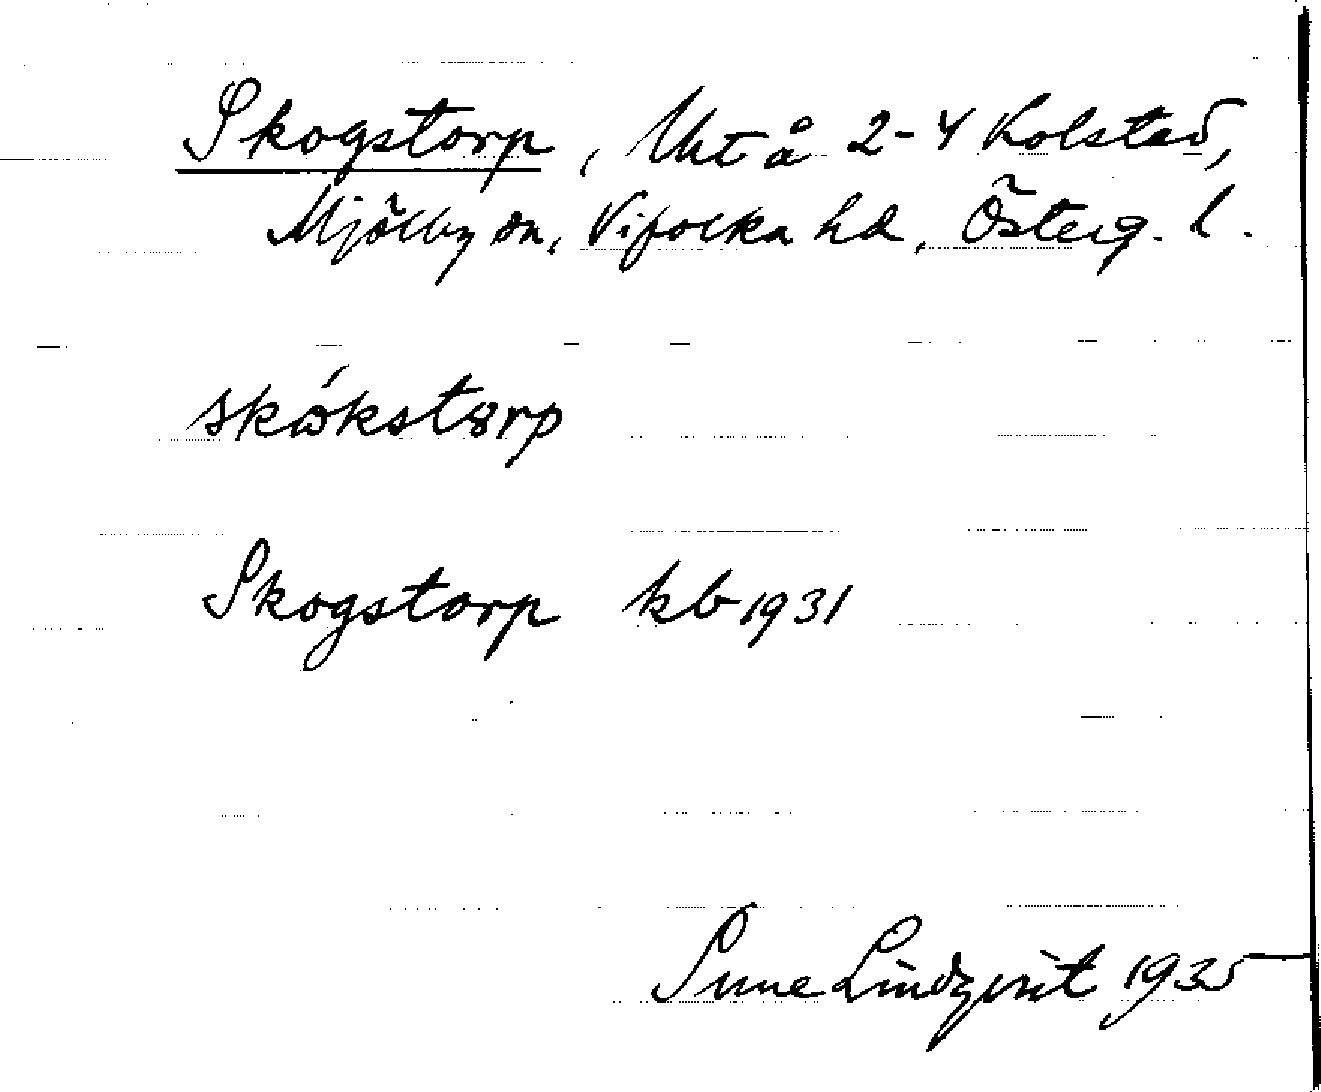 Skogstorp, lht å 2-4 Kolstad,
Mjölby sn, Vifolka hd, Österg. l.
skókstørp
Skogstorp kb 1931
Sune Lindqvist 1935